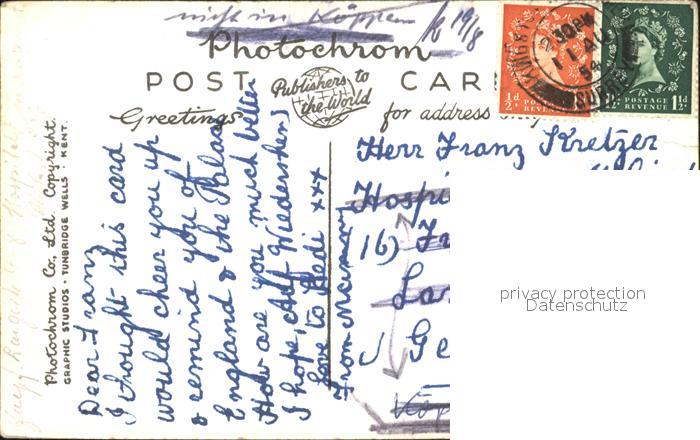 nicht in Köppern
19/8
Photochrom
POST CAR
Publishers to the World
Greetings
for address
Photochrom Co., Ltd. Copyright.
GRAPHIC STUDIOS · TUNBRIDGE WELLS · KENT.
Dear Franz
I thought this card
would cheer you up
& remind you of
England & the Palace
How are you much better
I hope, Auf Wiedersehen
Love to Hedi xxx
From Mummy
Herr Franz Kretzer
Hospi
16)
La
Ge
Köp
½d.
POSTAGE REVENUE
1½d
POSTAGE REVENUE
30PM
11 AU
54
SURREY
privacy protection
Datenschutz